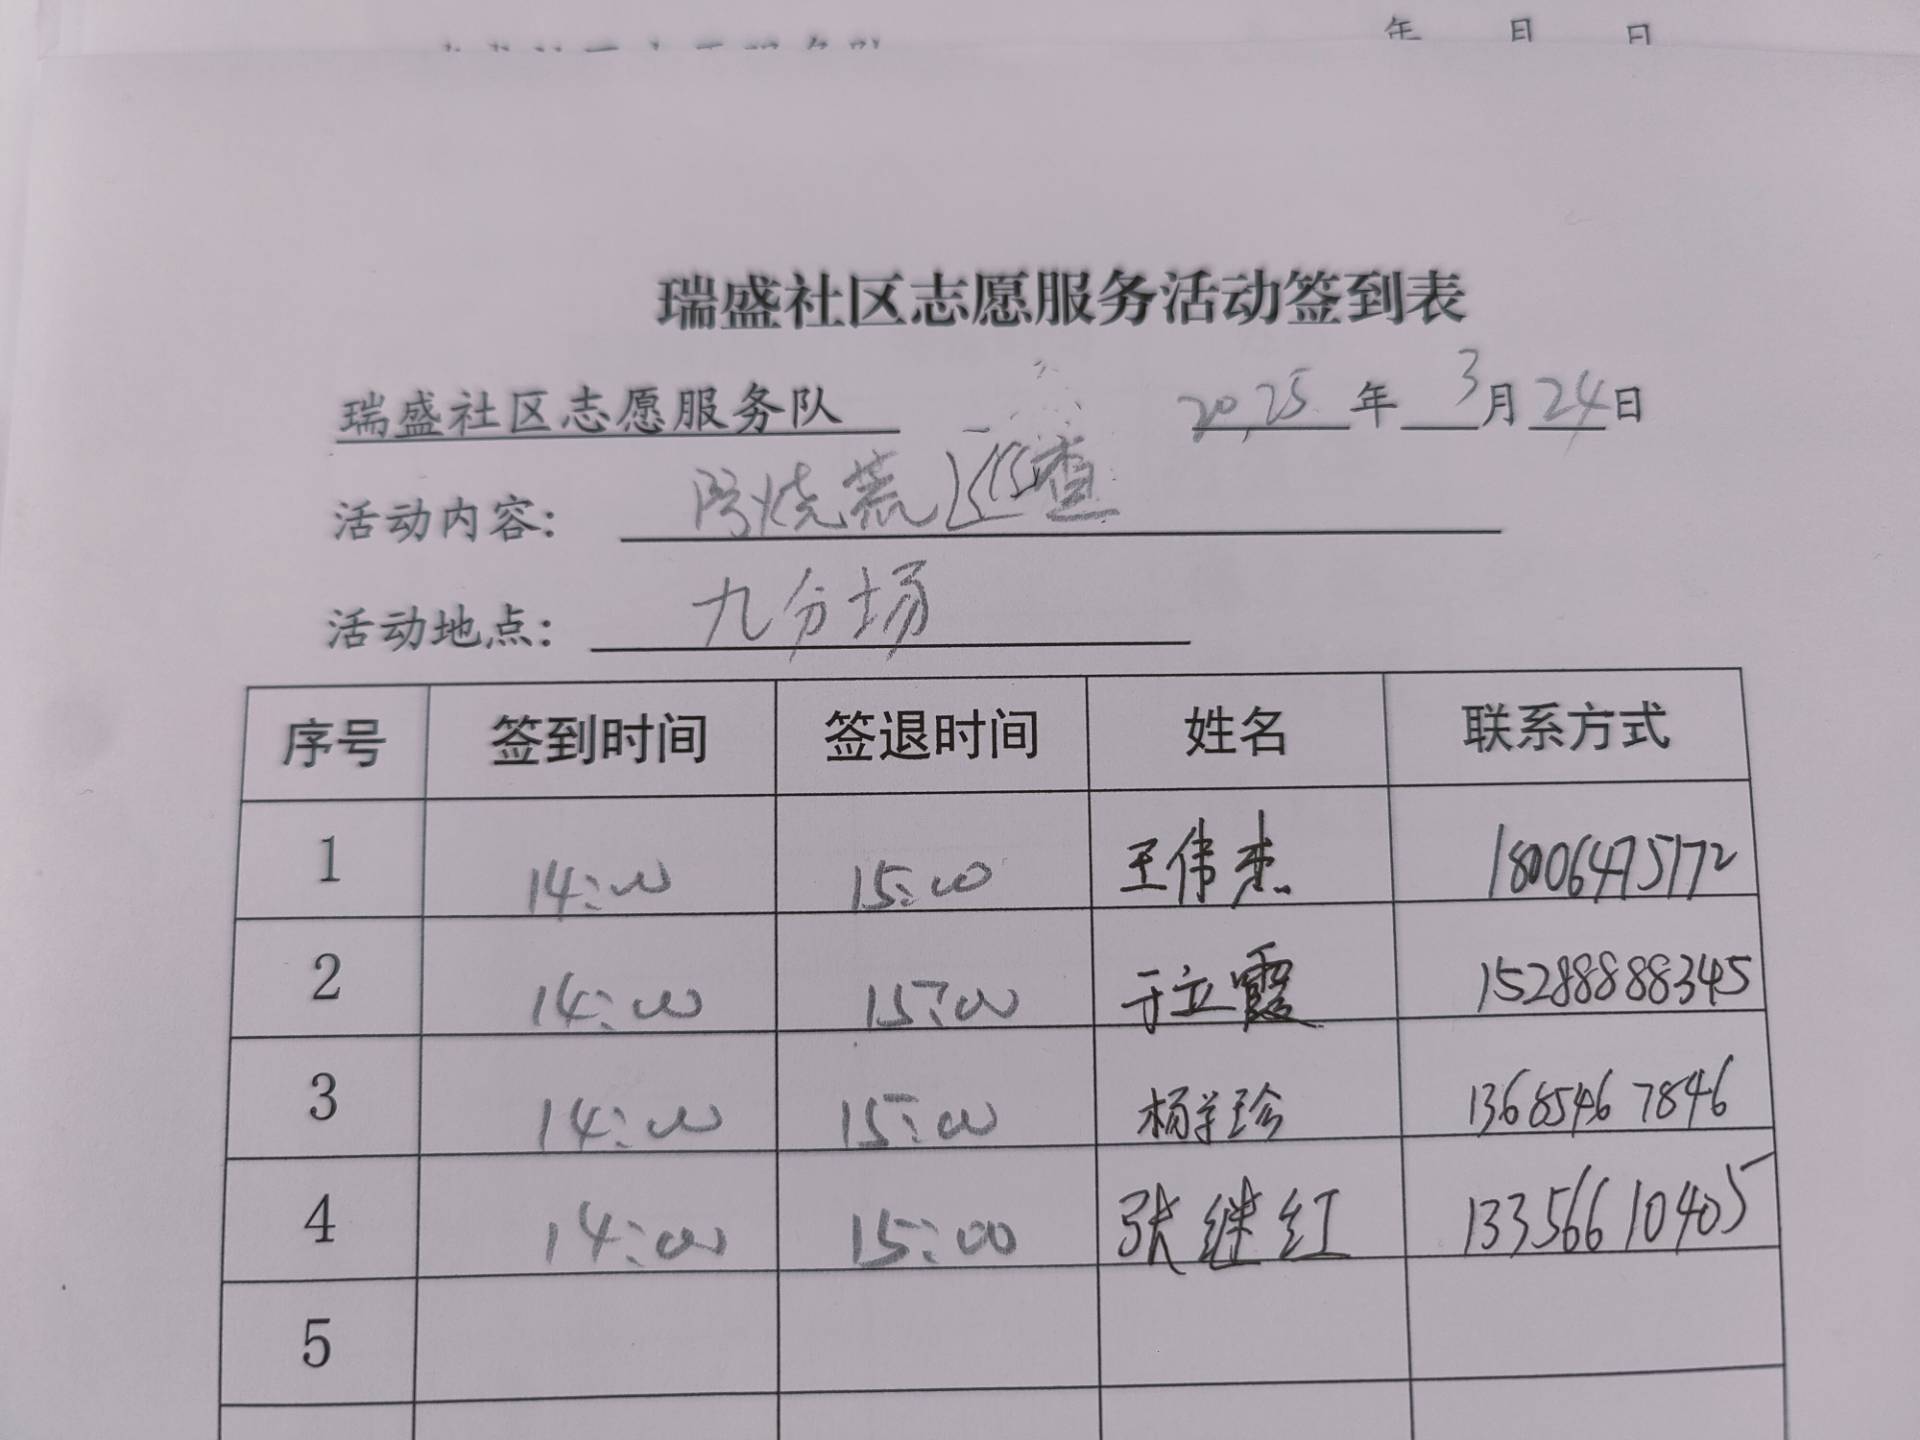 年 月 日
瑞盛社区志愿服务活动签到表
瑞盛社区志愿服务队 2025年3月24日
活动内容: 防烧荒巡查
活动地点: 九分场
序号 签到时间 签退时间 姓名 联系方式
1 14:00 15:00 王伟杰 18006475172
2 14:00 15:00 于立霞 15288888345
3 14:00 15:00 杨学珍 13685467846
4 14:00 15:00 张继红 13356610405
5